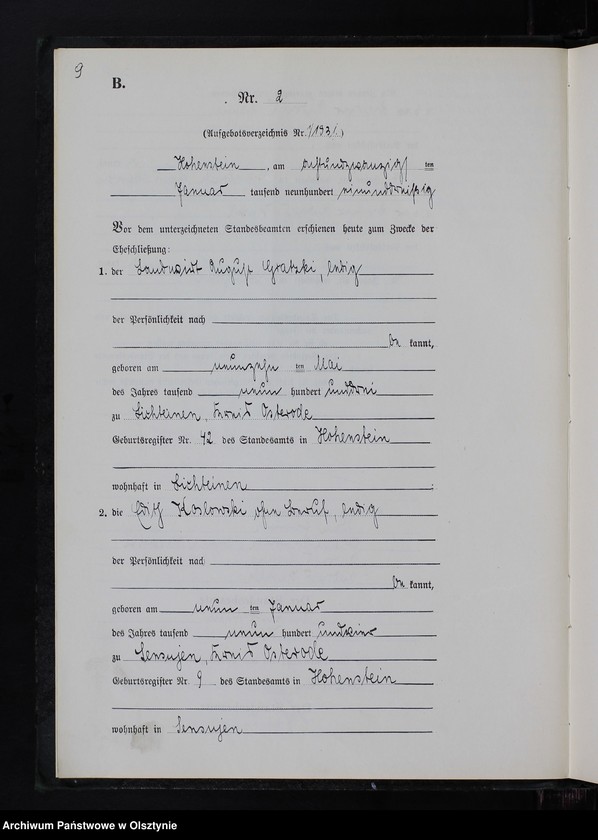 9
B.
Nr. 2
(Aufgebotsverzeichnis Nr. 1/1931.)
Hohenstein, am achtundzwanzig ten
Januar tausend neunhundert einunddreißig
Vor dem unterzeichneten Standesbeamten erschienen heute zum Zwecke der
Eheschließung:
1. der Landwirt August Gratzki, ledig
der Persönlichkeit nach
be kannt,
geboren am neunzehn ten Mai
des Jahres tausend neun hundert
zu Lichteinen, Kreis Osterode
Geburtsregister Nr. 42 des Standesamts in Hohenstein
wohnhaft in Lichteinen
2. die Edith Koslowski ohne Beruf, ledig
der Persönlichkeit nach
be kannt,
geboren am neun ten Januar
des Jahres tausend neun hundert
zu Sensujen, Kreis Osterode
Geburtsregister Nr. 9 des Standesamts in Hohenstein
wohnhaft in Sensujen
Archiwum Państwowe w Olsztynie